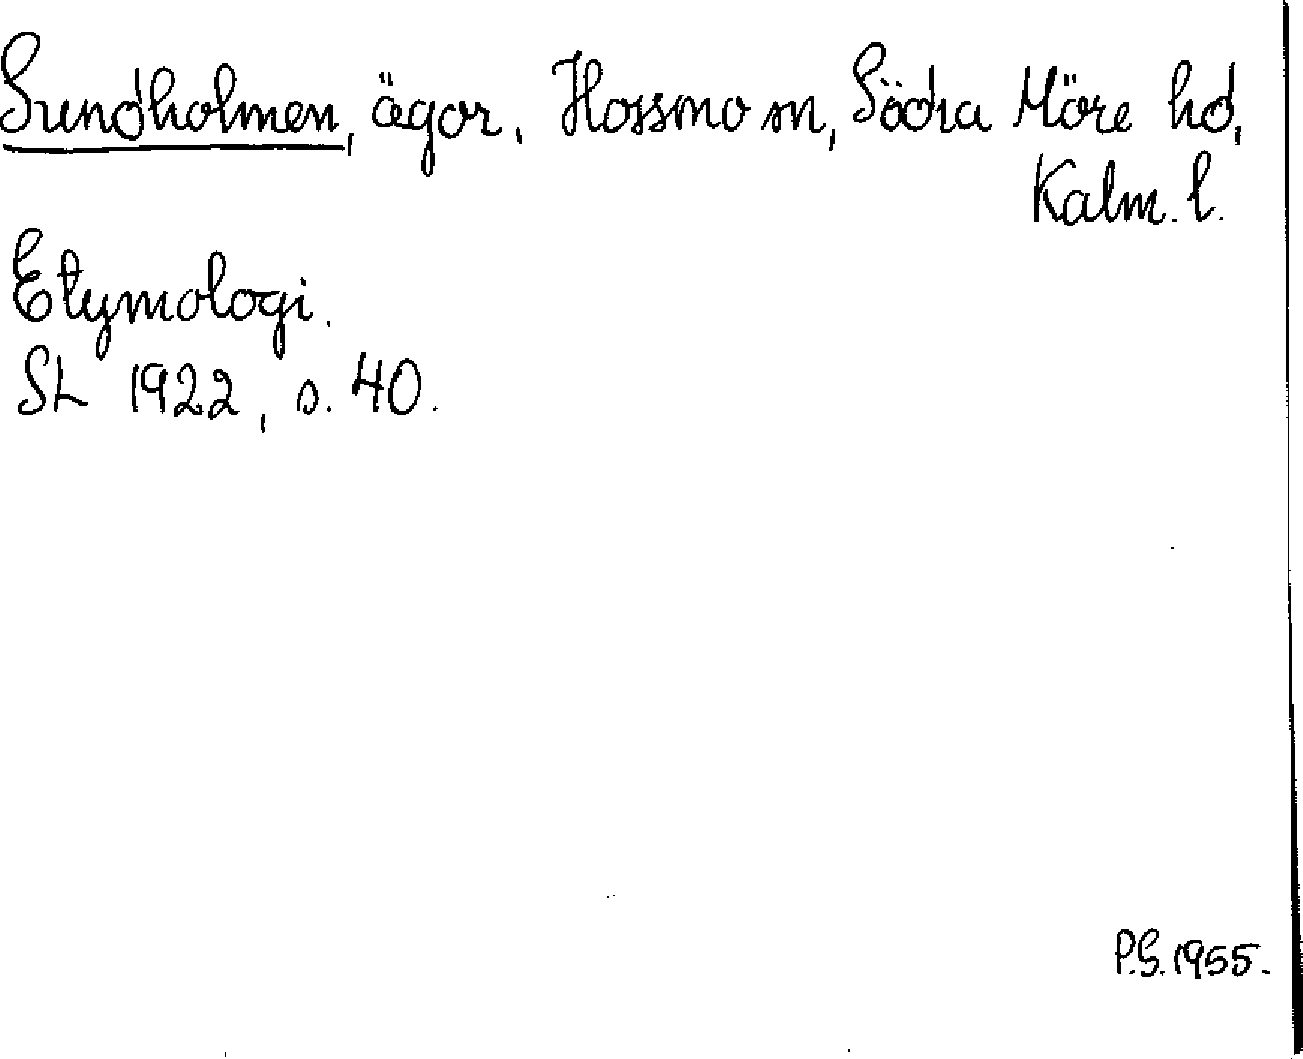 Sundholmen, ägor, Hossmo sn, Södra Möre hd,
Kalm. l.
Etymologi.
SL 1922, s. 40.
P.G. 1955.